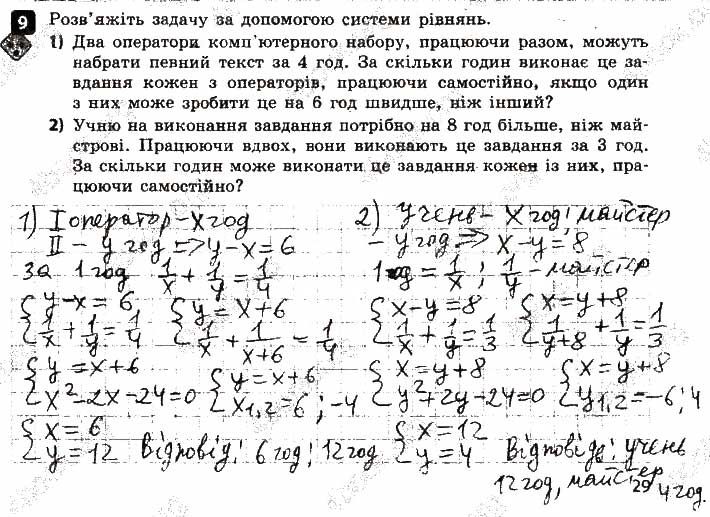 9 Розв'яжіть задачу за допомогою системи рівнянь.
1) Два оператори комп'ютерного набору, працюючи разом, можуть
набрати певний текст за 4 год. За скільки годин виконає це за-
вдання кожен з операторів, працюючи самостійно, якщо один
з них може зробити це на 6 год швидше, ніж інший?
2) Учню на виконання завдання потрібно на 8 год більше, ніж май-
строві. Працюючи вдвох, вони виконають це завдання за 3 год.
За скільки годин може виконати це завдання кожен із них, пра-
цюючи самостійно?
1) I оператор - x год
II - y год => y - x = 6
за 1 год 1/x + 1/y = 1/4
{ y - x = 6 { y = x + 6
{ 1/x + 1/y = 1/4 { 1/x + 1/(x+6) = 1/4
{ y = x + 6 { y = x + 6
{ x² - 2x - 24 = 0 { x1,2 = 6; -4
{ x = 6
{ y = 12 Відповідь: 6 год; 12 год
2) Учень - x год; майстер
- y год => x - y = 8
1 год = 1/x; 1/y - майстер
{ x - y = 8 { x = y + 8
{ 1/x + 1/y = 1/3 { 1/(y+8) + 1/y = 1/3
{ x = y + 8 { x = y + 8
{ y² + 2y - 24 = 0 { y1,2 = -6; 4
{ x = 12
{ y = 4 Відповідь: учень
12 год, майстер 4 год.
29